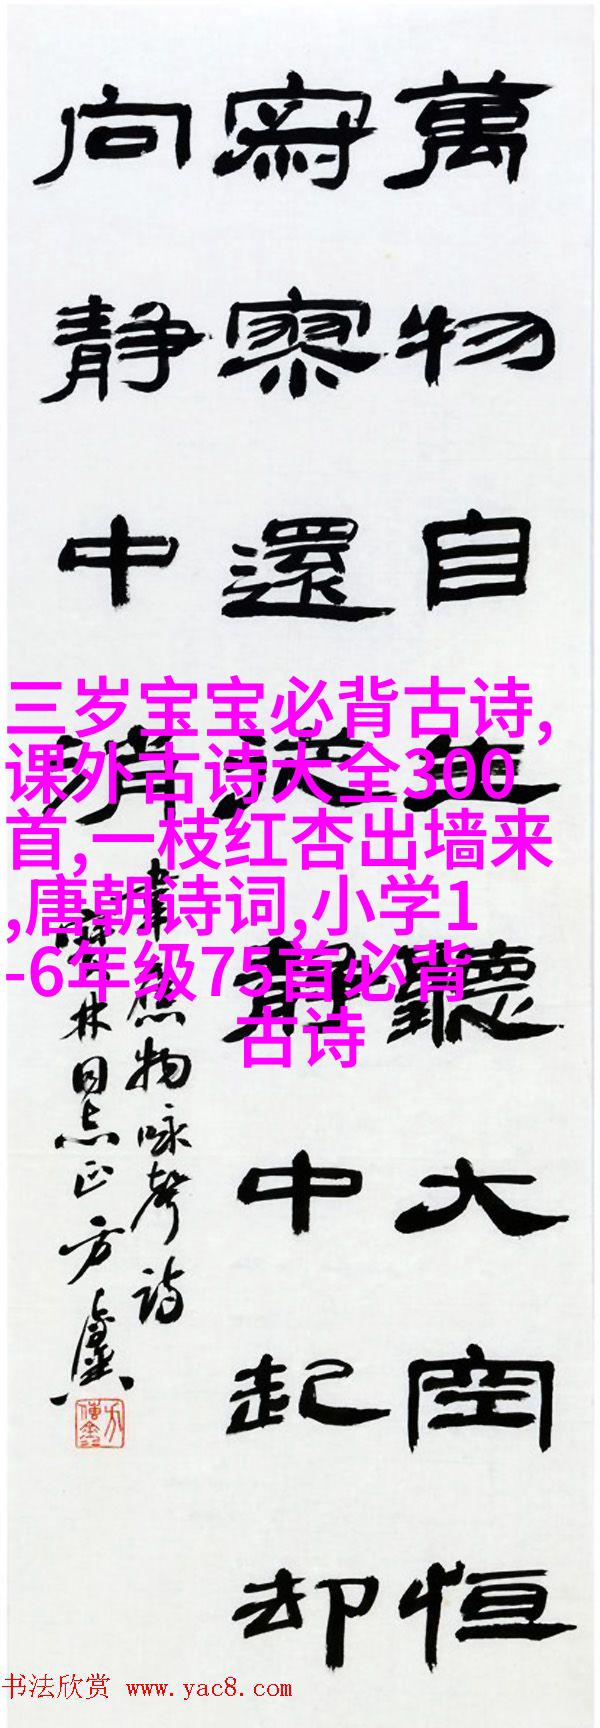 萬物自生聽大空恒
寂寥還從静中起却
向静中消
韋應物咏聲詩
林同志正方
三岁宝宝必背古诗,
课外古诗大全300
首,一枝红杏出墙来
,唐朝诗词,小学1
-6年级75首必背
古诗
书法欣赏 www.yac8.com